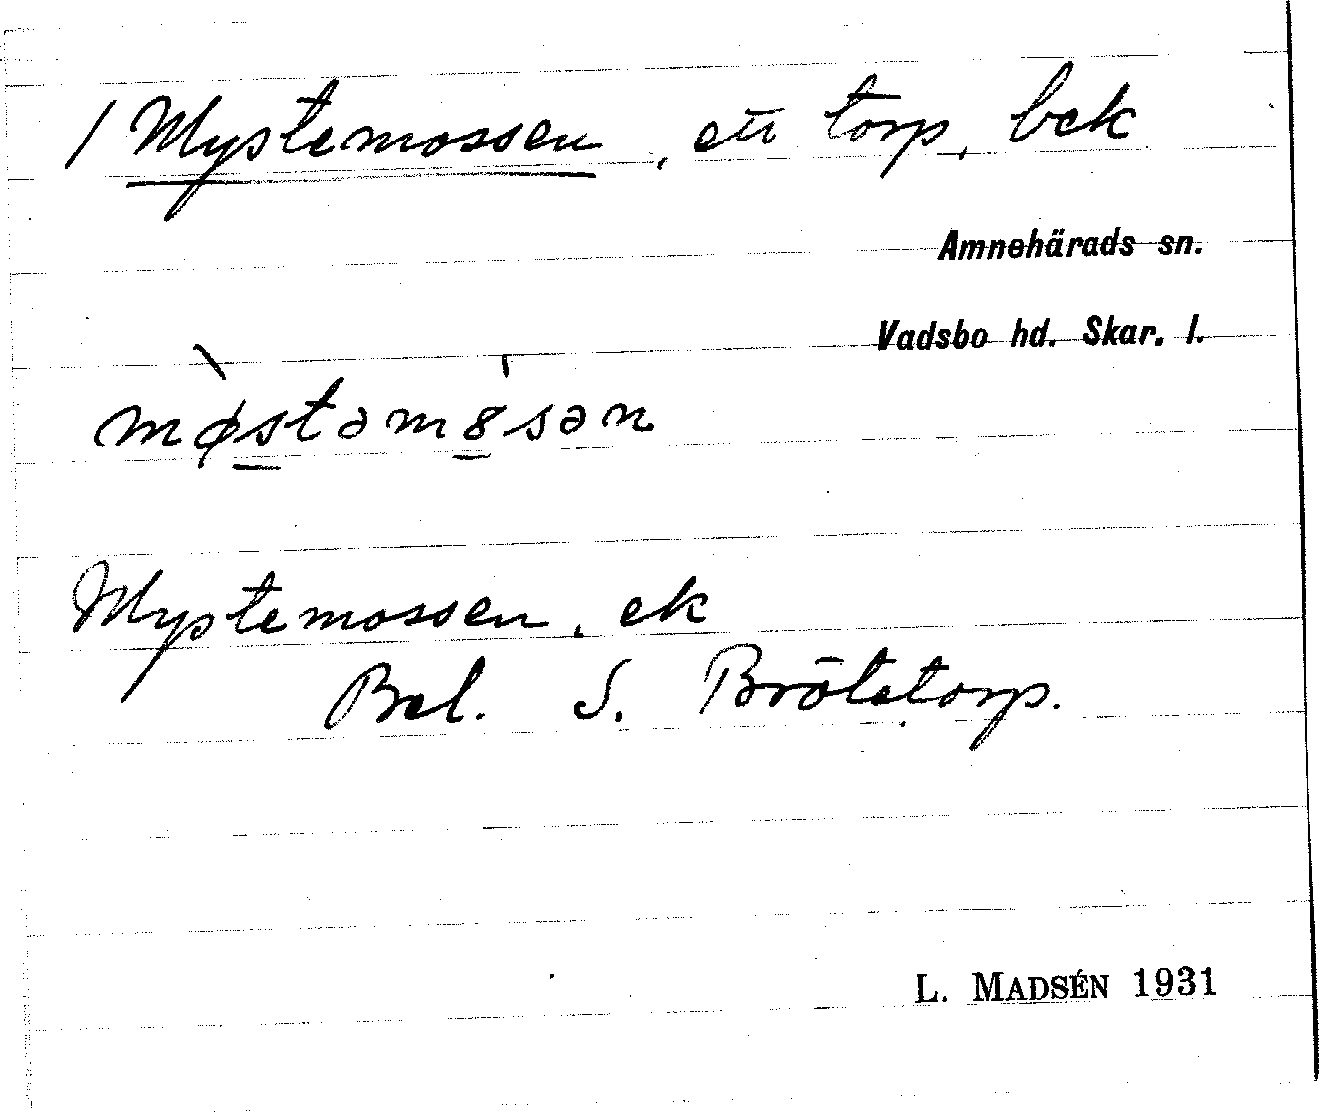 / Mystemossen, ett torp, bek
Amnehärads sn.
Vadsbo hd. Skar. l.
mø̀stəm8́sən
Mystemossen, ek
Bel. S. Brötetorp.
L. MADSÉN 1931